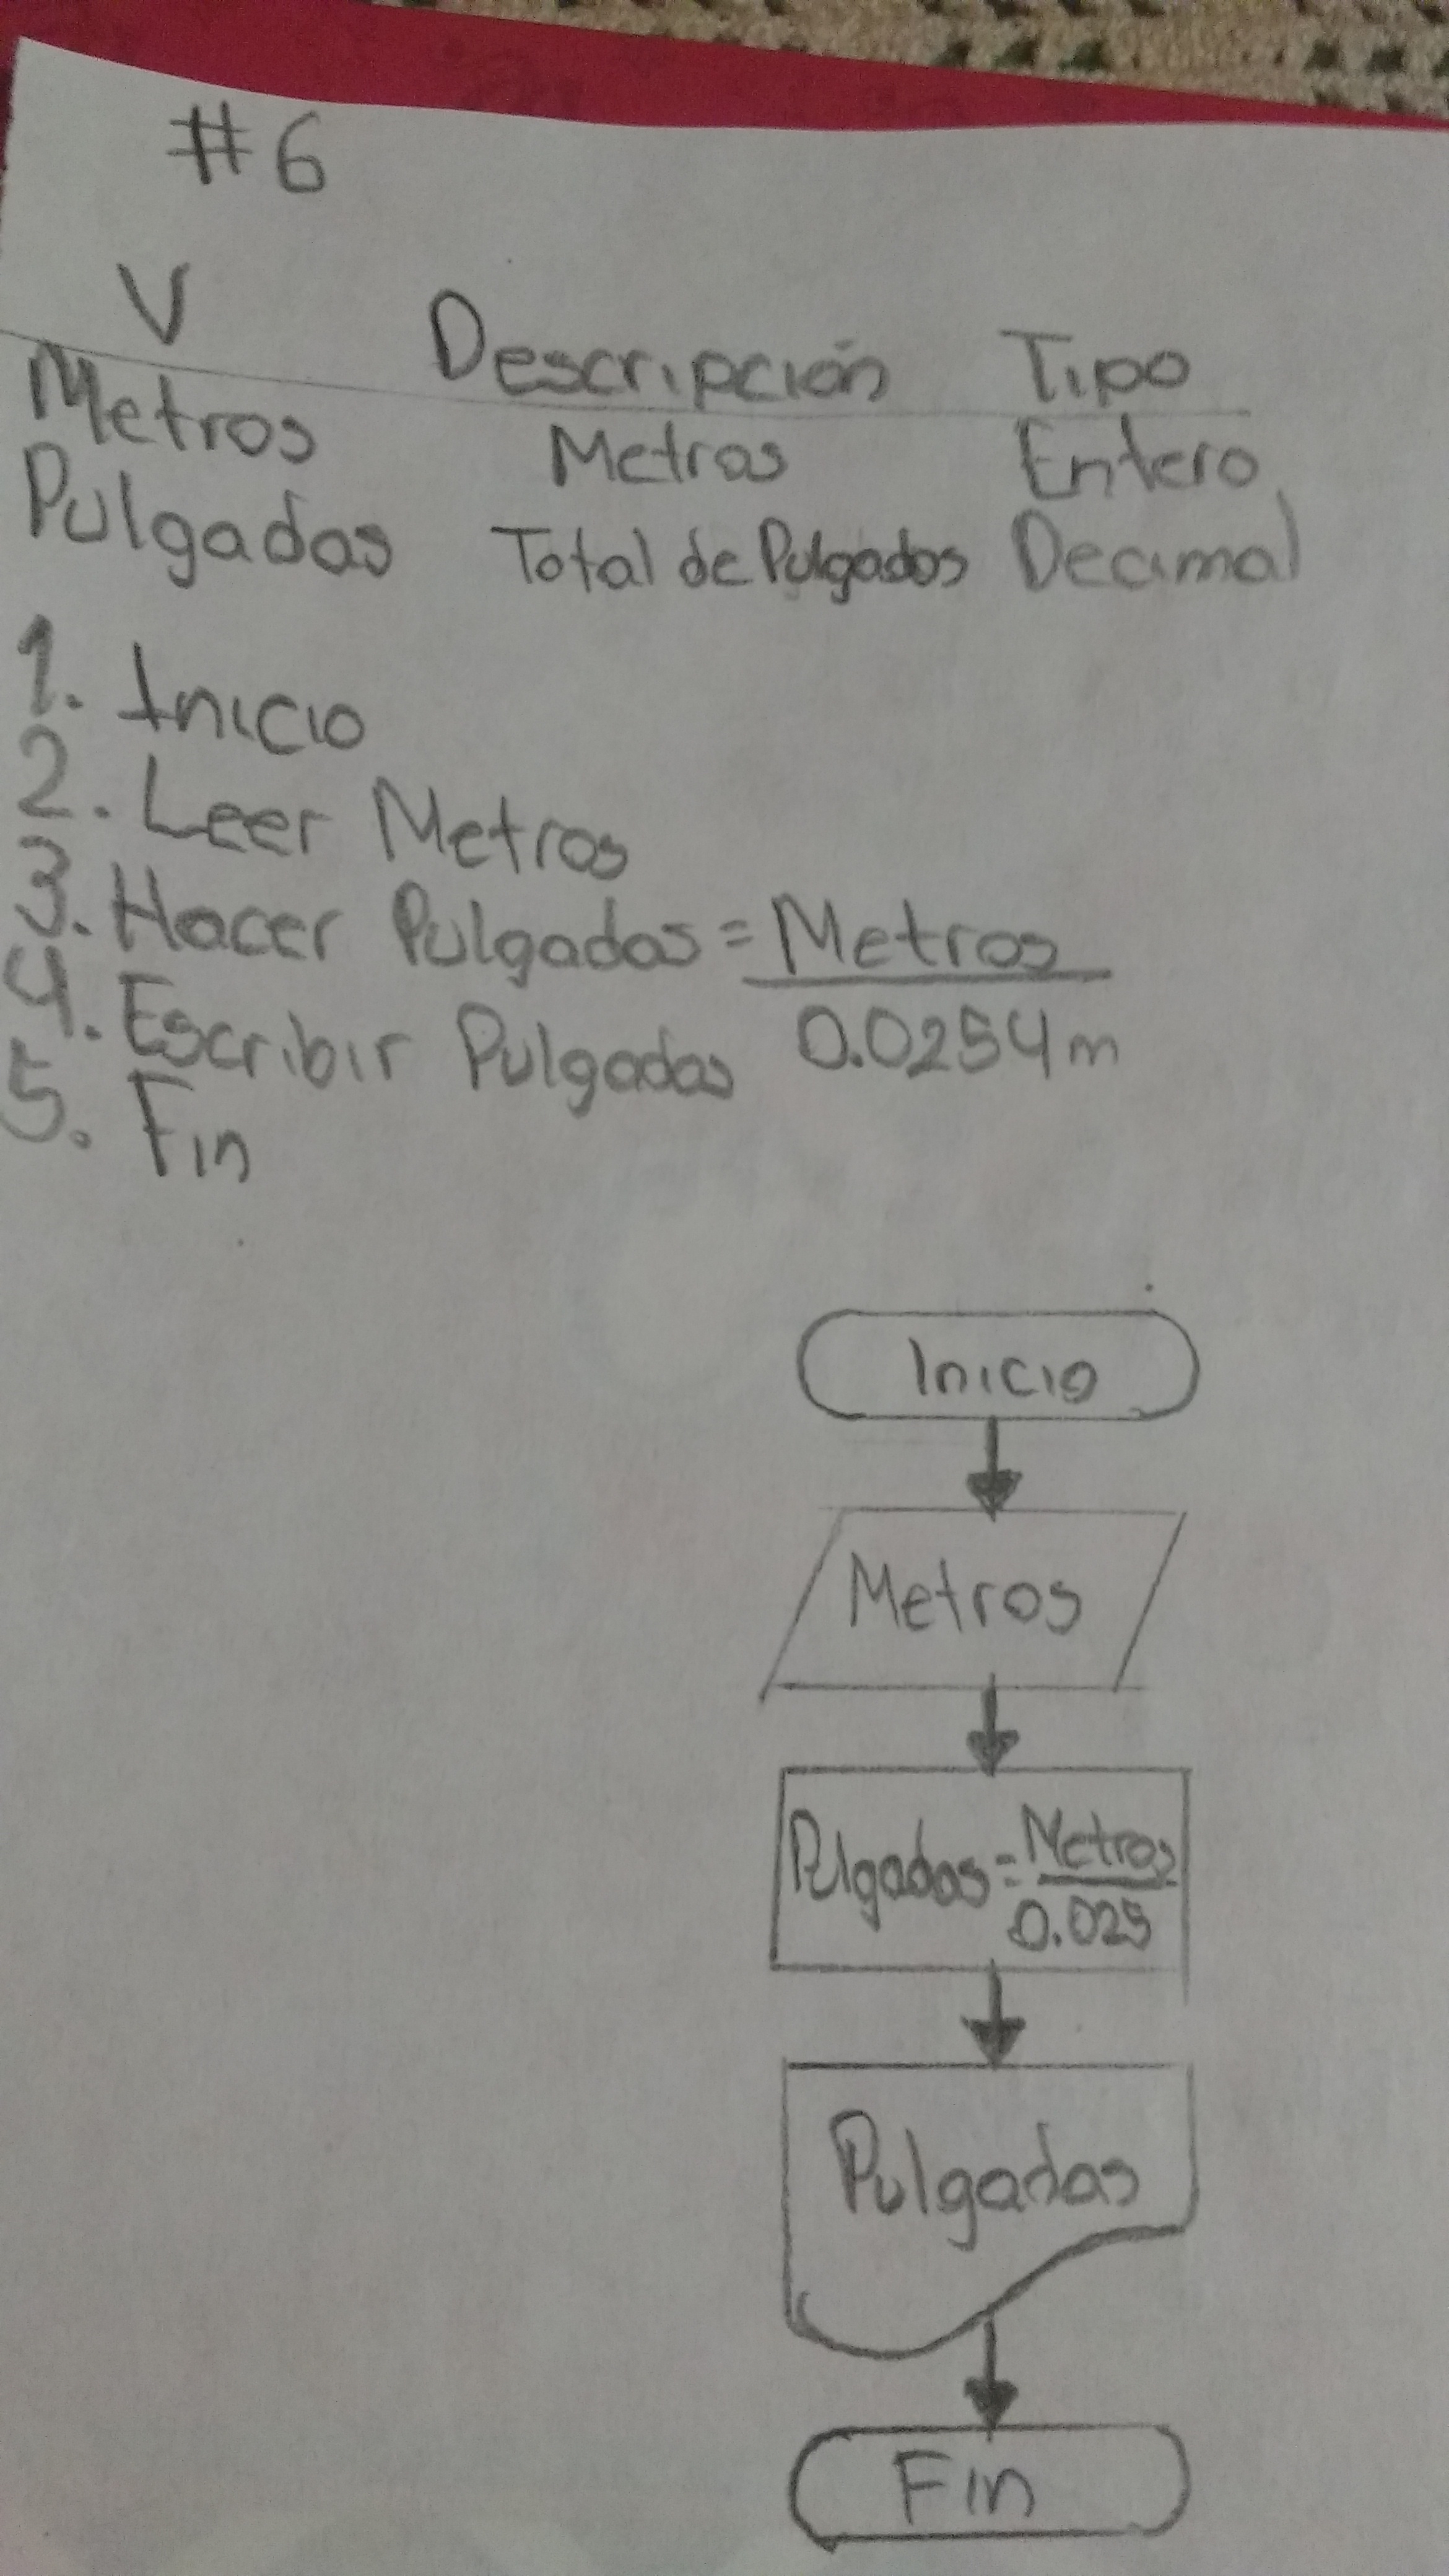 #6
V Descripción Tipo
Metros Metros Entero
Pulgadas Total de Pulgadas Decimal
1. Inicio
2. Leer Metros
3. Hacer Pulgadas = Metros
0.0254m
4. Escribir Pulgadas
5. Fin
Inicio
Metros
Pulgadas = Metros
0.025
Pulgadas
Fin